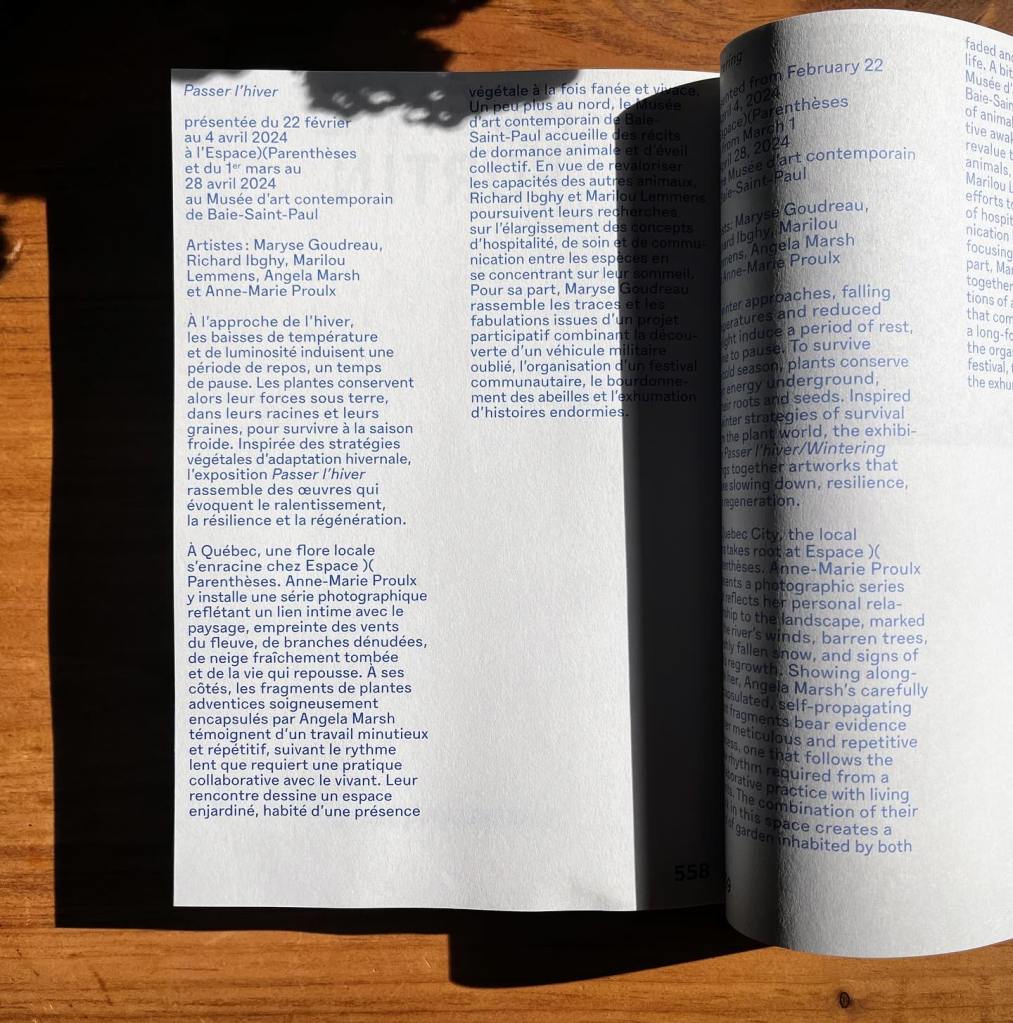 Passer l'hiver
présentée du 22 février
au 4 avril 2024
à l'Espace)(Parenthèses
et du 1er mars au
28 avril 2024
au Musée d'art contemporain
de Baie-Saint-Paul
Artistes : Maryse Goudreau,
Richard Ibghy, Marilou
Lemmens, Angela Marsh
et Anne-Marie Proulx
À l'approche de l'hiver,
les baisses de température
et de luminosité induisent une
période de repos, un temps
de pause. Les plantes conservent
alors leur forces sous terre,
dans leurs racines et leurs
graines, pour survivre à la saison
froide. Inspirée des stratégies
végétales d'adaptation hivernale,
l'exposition Passer l'hiver
rassemble des œuvres qui
évoquent le ralentissement,
la résilience et la régénération.
À Québec, une flore locale
s'enracine chez Espace )(
Parenthèses. Anne-Marie Proulx
y installe une série photographique
reflétant un lien intime avec le
paysage, empreinte des vents
du fleuve, de branches dénudées,
de neige fraîchement tombée
et de la vie qui repousse. À ses
côtés, les fragments de plantes
adventices soigneusement
encapsulés par Angela Marsh
témoignent d'un travail minutieux
et répétitif, suivant le rythme
lent que requiert une pratique
collaborative avec le vivant. Leur
rencontre dessine un espace
enjardiné, habité d'une présence
végétale à la fois fanée et vivace.
Un peu plus au nord, le Musée
d'art contemporain de Baie-
Saint-Paul accueille des récits
de dormance animale et d'éveil
collectif. En vue de revaloriser
les capacités des autres animaux,
Richard Ibghy et Marilou Lemmens
poursuivent leurs recherches
sur l'élargissement des concepts
d'hospitalité, de soin et de commu-
nication entre les espèces en
se concentrant sur leur sommeil.
Pour sa part, Maryse Goudreau
rassemble les traces et les
fabulations issues d'un projet
participatif combinant la décou-
verte d'un véhicule militaire
oublié, l'organisation d'un festival
communautaire, le bourdonne-
ment des abeilles et l'exhumation
d'histoires endormies.
558
from February 22
4, 2024
)(Parenthèses
from March 1
28, 2024
Musée d'art contemporain
Baie-Saint-Paul
Maryse Goudreau,
Ibghy, Marilou
Angela Marsh
Anne-Marie Proulx
approaches, falling
and reduced
induce a period of rest,
to pause. To survive
season, plants conserve
energy underground,
roots and seeds. Inspired
strategies of survival
the plant world, the exhibi-
Passer l'hiver/Wintering
together artworks that
slowing down, resilience,
regeneration.
City, the local
takes root at Espace )(
Anne-Marie Proulx
a photographic series
reflects her personal rela-
to the landscape, marked
river's winds, barren trees,
fallen snow, and signs of
regrowth. Showing along-
her, Angela Marsh's carefully
self-propagating
fragments bear evidence
meticulous and repetitive
one that follows the
rhythm required from a
practice with living
The combination of their
in this space creates a
of garden inhabited by both
faded and
life. A bit
Musée d'
Baie-Sain
of animal
tive awak
revalue t
animals,
Marilou L
efforts to
of hospit
nication
focusing
part, Mar
together
tions of a
that com
a long-fo
the orga
festival, t
the exhu